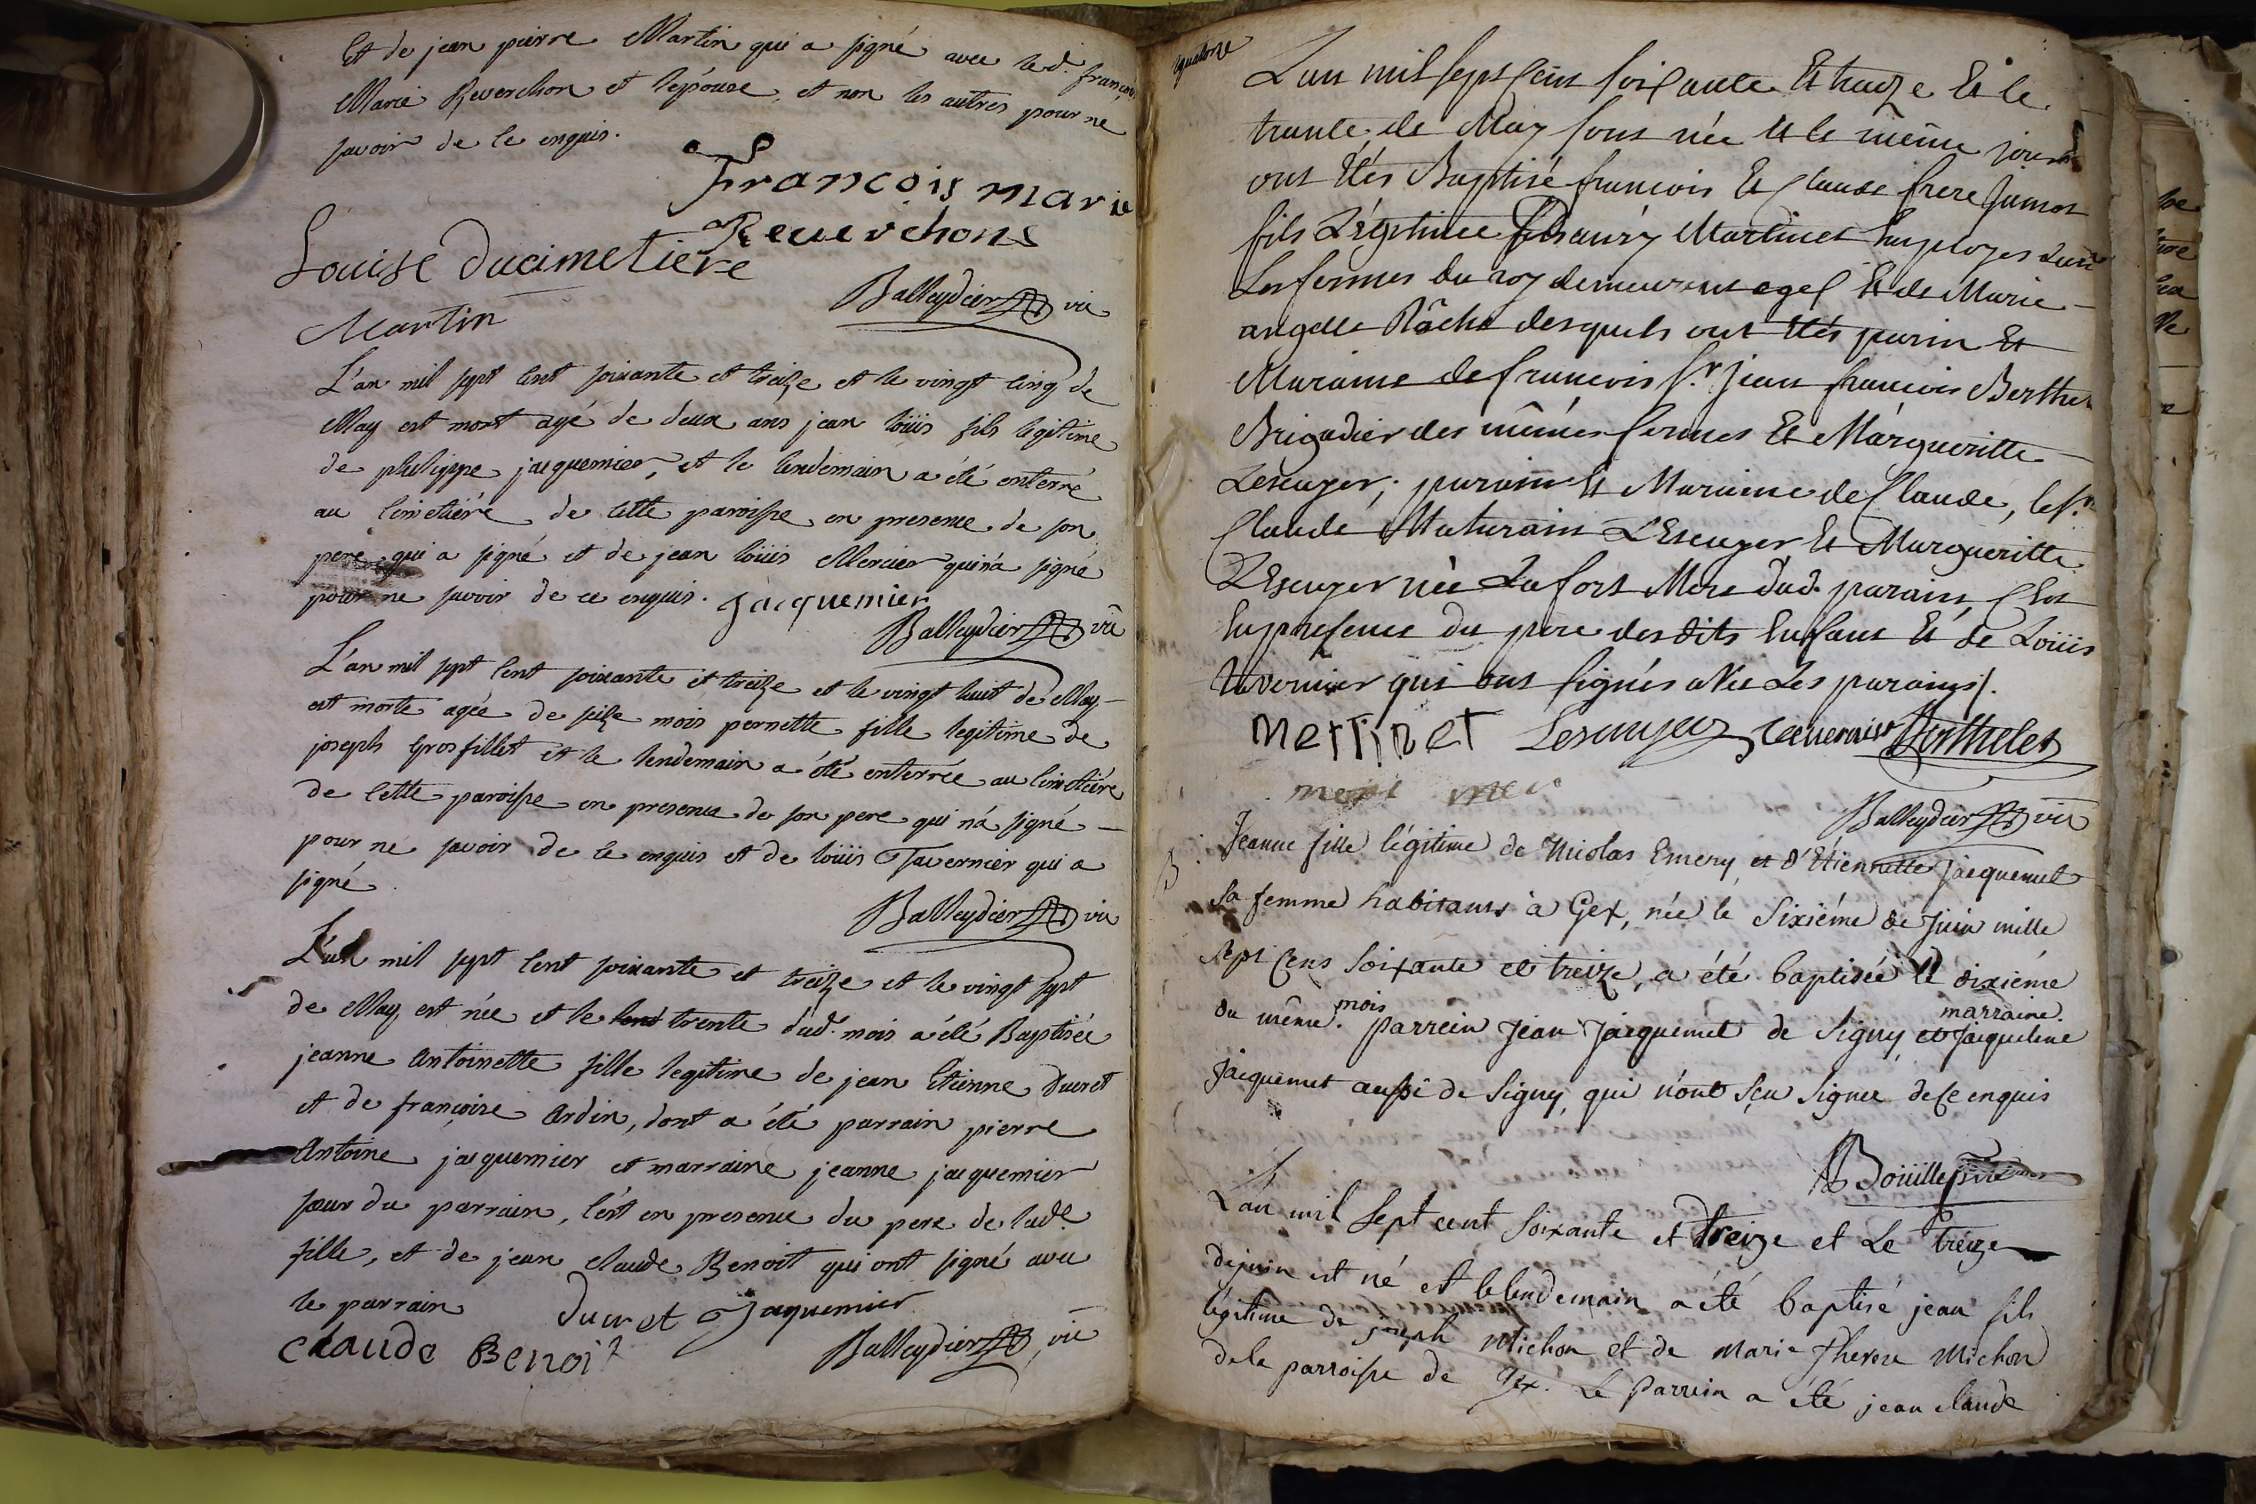 Et de jean pierre Martin qui a signé avec led. françois
Marie Reverchon et lepouse, et non les autres pour ne
savoir de ce enquis.
François marie
Reverchons
Louise Ducimetiere
Martin
Balleydier vic
L'an mil sept cent soixante et treize et le vingt cinq de
May est mort agé de deux ans jean loüis fils legitime
de philippe jacquemier, et le lendemain a été enterré
au cimetiére de cette paroisse en presence de son
pere qui a signé et de jean loüis Mercier qui n'a signé
pour ne savoir de ce enquis. jacquemier
Balleydier vic
L'an mil sept cent soixante et treize et le vingt huit de May
est morte agée de seize mois pernette fille legitime de
joseph Grosfillet et le lendemain a été enterrée au cimetiére
de cette paroisse en presence de son pere qui n'a signé
pour ne savoir de ce enquis et de loüis Tavernier qui a
signé
Balleydier vic
L'an mil sept cent soixante et treize et le vingt sept
de May est née et le trente dud. mois a été Baptisée
jeanne Antoinette fille legitime de jean Etienne Ducret
et de françoise Ardin, dont a été parrain pierre
Antoine jacquemier et marraine jeanne jacquemier
sœur du parrain, c'est en presence du pere de lade
fille, et de jean claude Benoit qui ont signé avec
le parrain Ducret Jaquemier
claude Benoit Balleydier vic
quatorze
L'an mil sept cent soixante Et treize Et le
trante de May sont née Et le même jour
ont étés Baptisé francois Et Claude frere Jumos
fils Légitime Martinet Employez dans
Les fermes du roy demeurant a gex Et de Marie
angelle Râche desquels ont étés parin Et
Maraine de francois Sr. jean francois Berthelet
Brigadier des mêmes fermes Et Márgueritte
Lescuyer; parain Et Maraine de Claude, le Sr.
Claude Maturain L'Escuyer Et Margueritte
L'Escuyer née Lafort Mere dud. parain, C'est
En presence du pere desdits Enfans Et de Loüis
Tavernier qui ont signés avec Les parains/.
MerTineT Lescuyer Tavernier Berthelet
Balleydier vic
B
Jeanne fille légitime de Nicolas Emery, et d'Etiennette Jacquemet
sa femme habitants à Gex, née le sixiéme de juin mille
sept cens soixante et treize, a été baptisée le dixiéme
du même. mois parrein Jean Jacquemet de Signy, et marraine. Jacqueline
Jacquemet aussi de Signy, qui n'ont sçu signer de ce enquis
Boüille
L'an mil sept cent soixante et treize et Le treize
de juin est né et le lendemain a été baptisé jean fils
légitime de joseph Michon et de Marie Therese Michon
de la parroisse de Gex. Le parrein a été jean claude